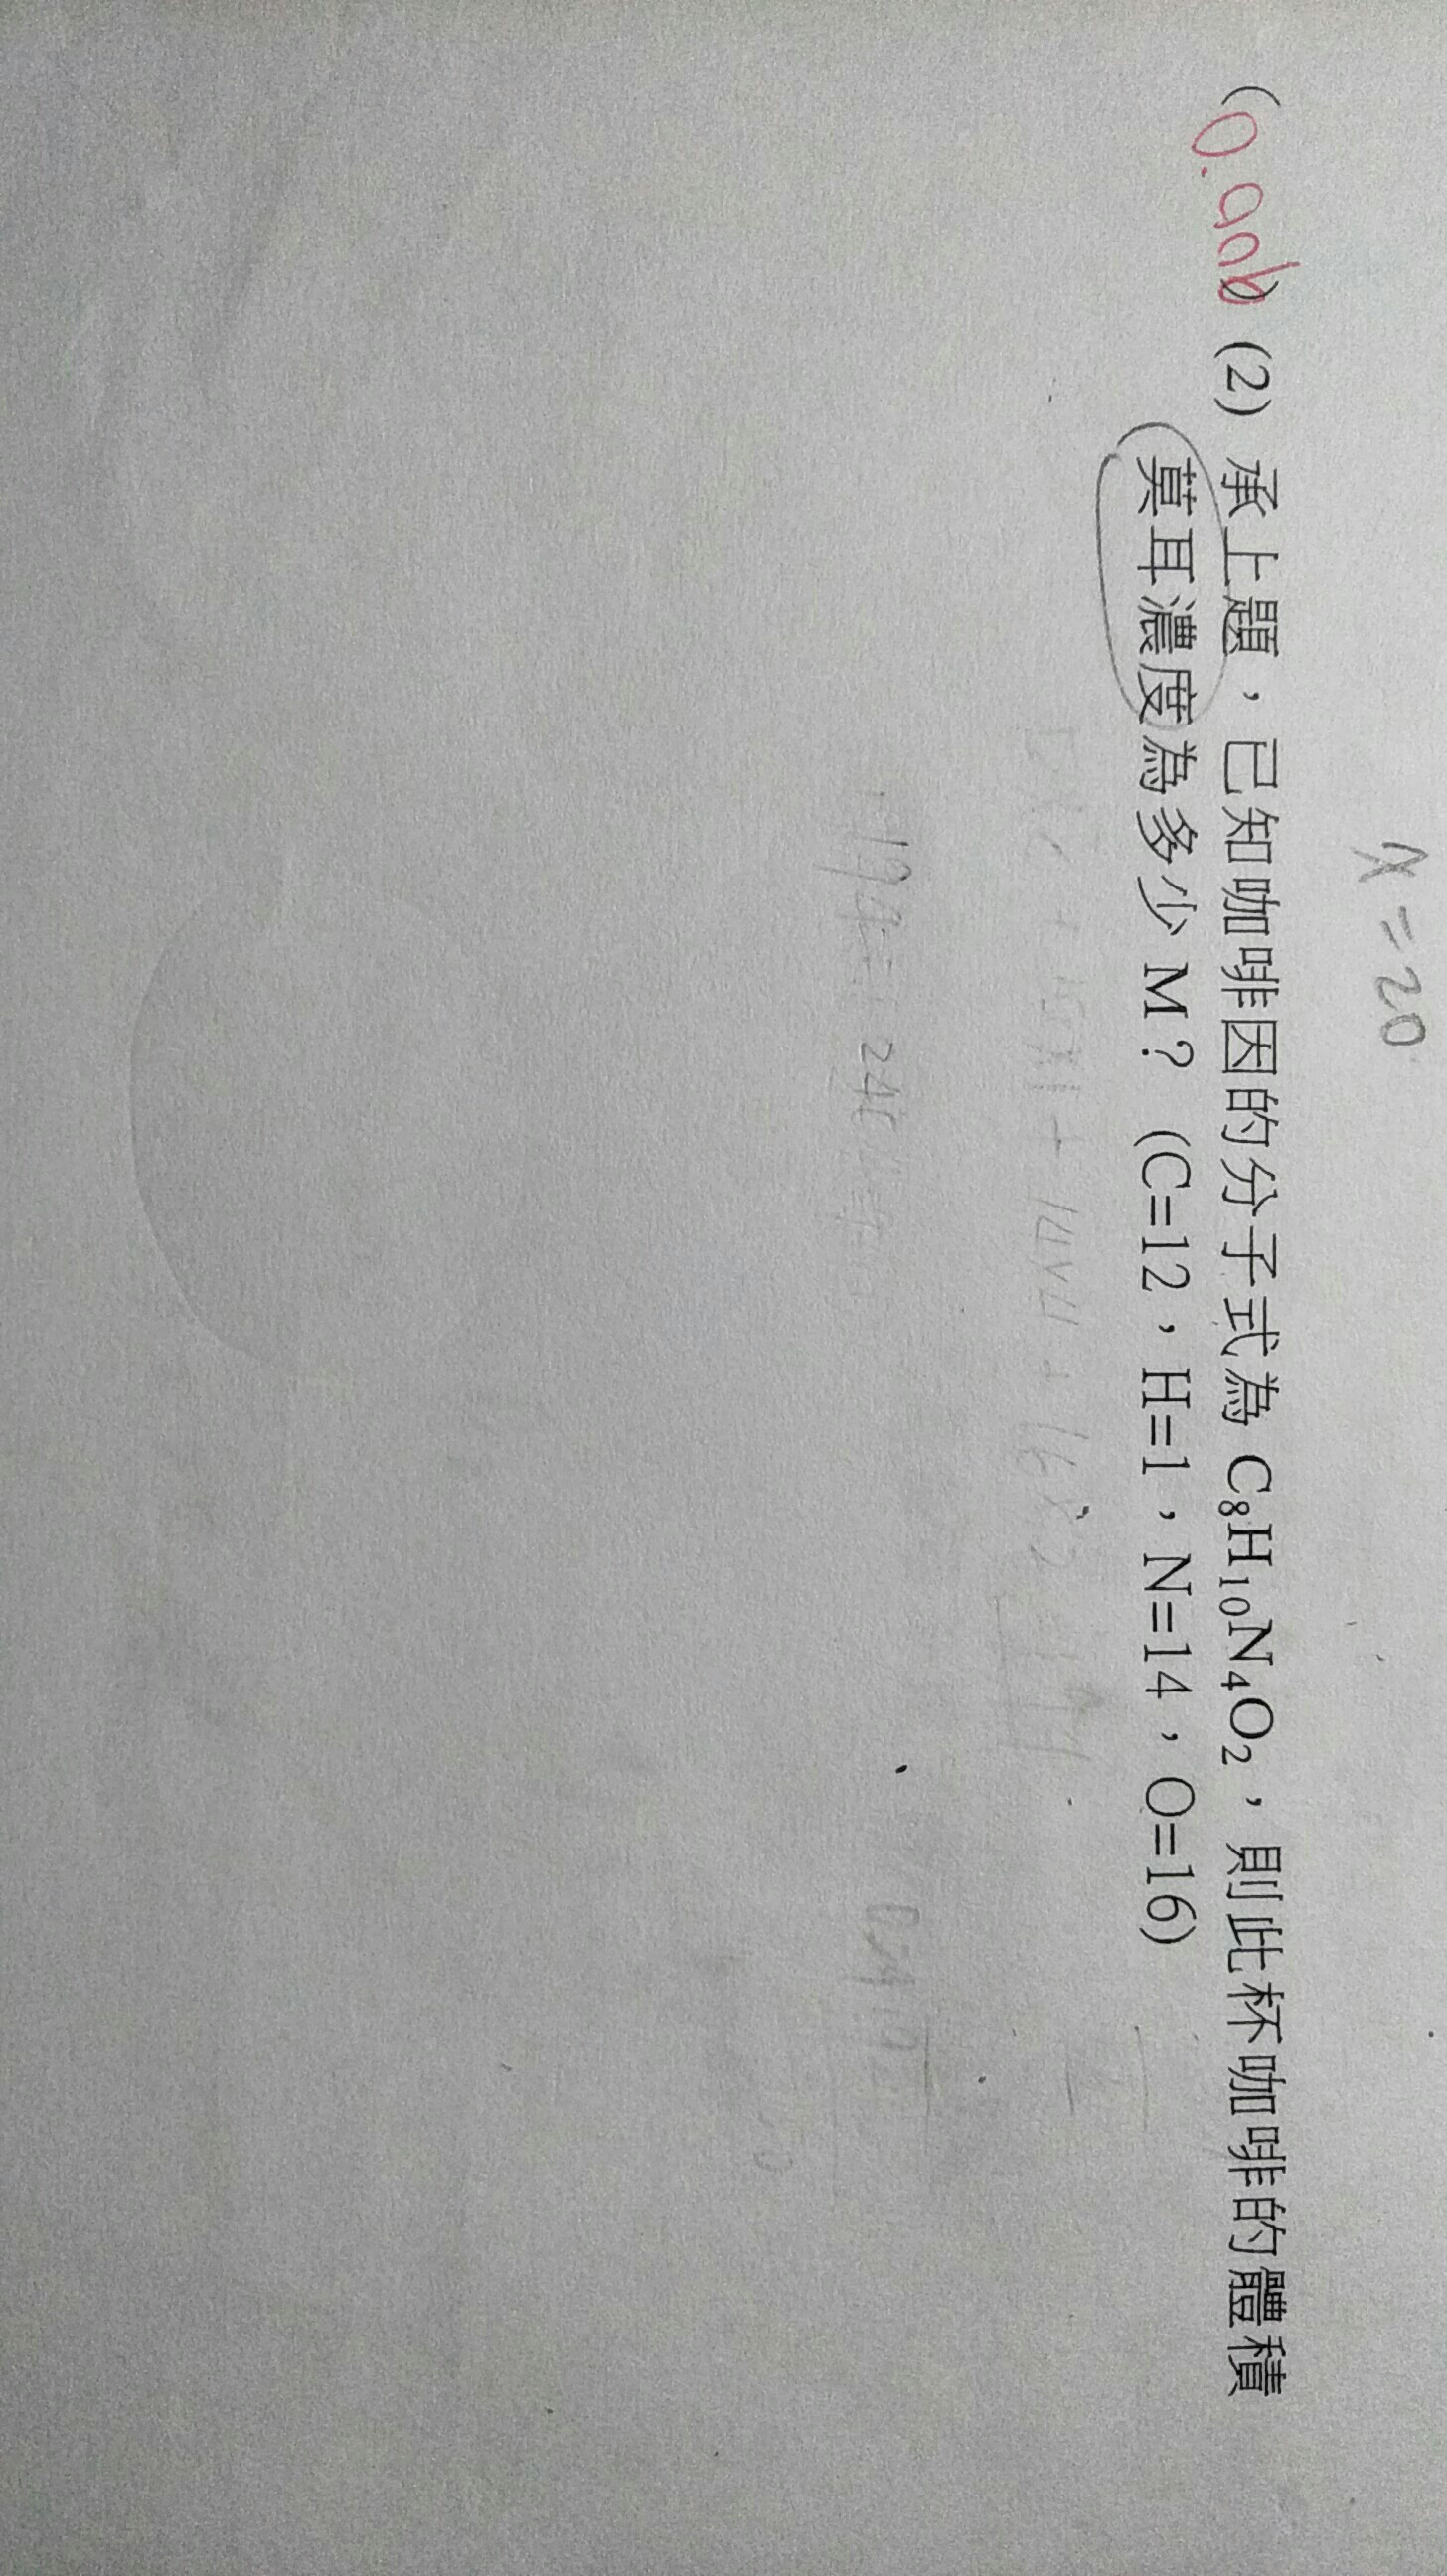 x = 20
(0.006) (2) 承上題，已知咖啡因的分子式為 C₈H₁₀N₄O₂，則此杯咖啡的體積
莫耳濃度為多少 M？ (C=12，H=1，N=14，O=16)